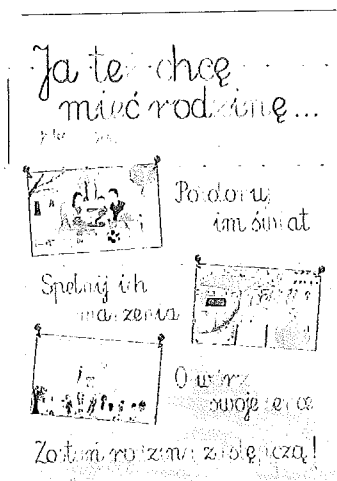 Ja też chcę
mieć rodzinę...
Podaruj
im świat
Spełnij ich
marzenia
Otwórz
swoje serce
Zostań rodziną zastępczą!